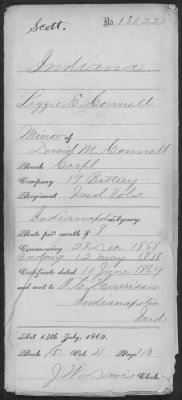 Scott.
No.
Indiana.
Lizzie E. Connell
Minor of
David M. Connell
Rank Corpl
Company 19 Battery
Regiment Ind Vols
Indianapolis Agency.
Rate per month $ 8
Commencing 28 Dec 1868
Ending 12 May 1878
Certificate dated 10 June 1869
and sent to
Indianapolis
Ind
Act 14th July, 1862.
Book Vol. 4 Page 13
Clerk.